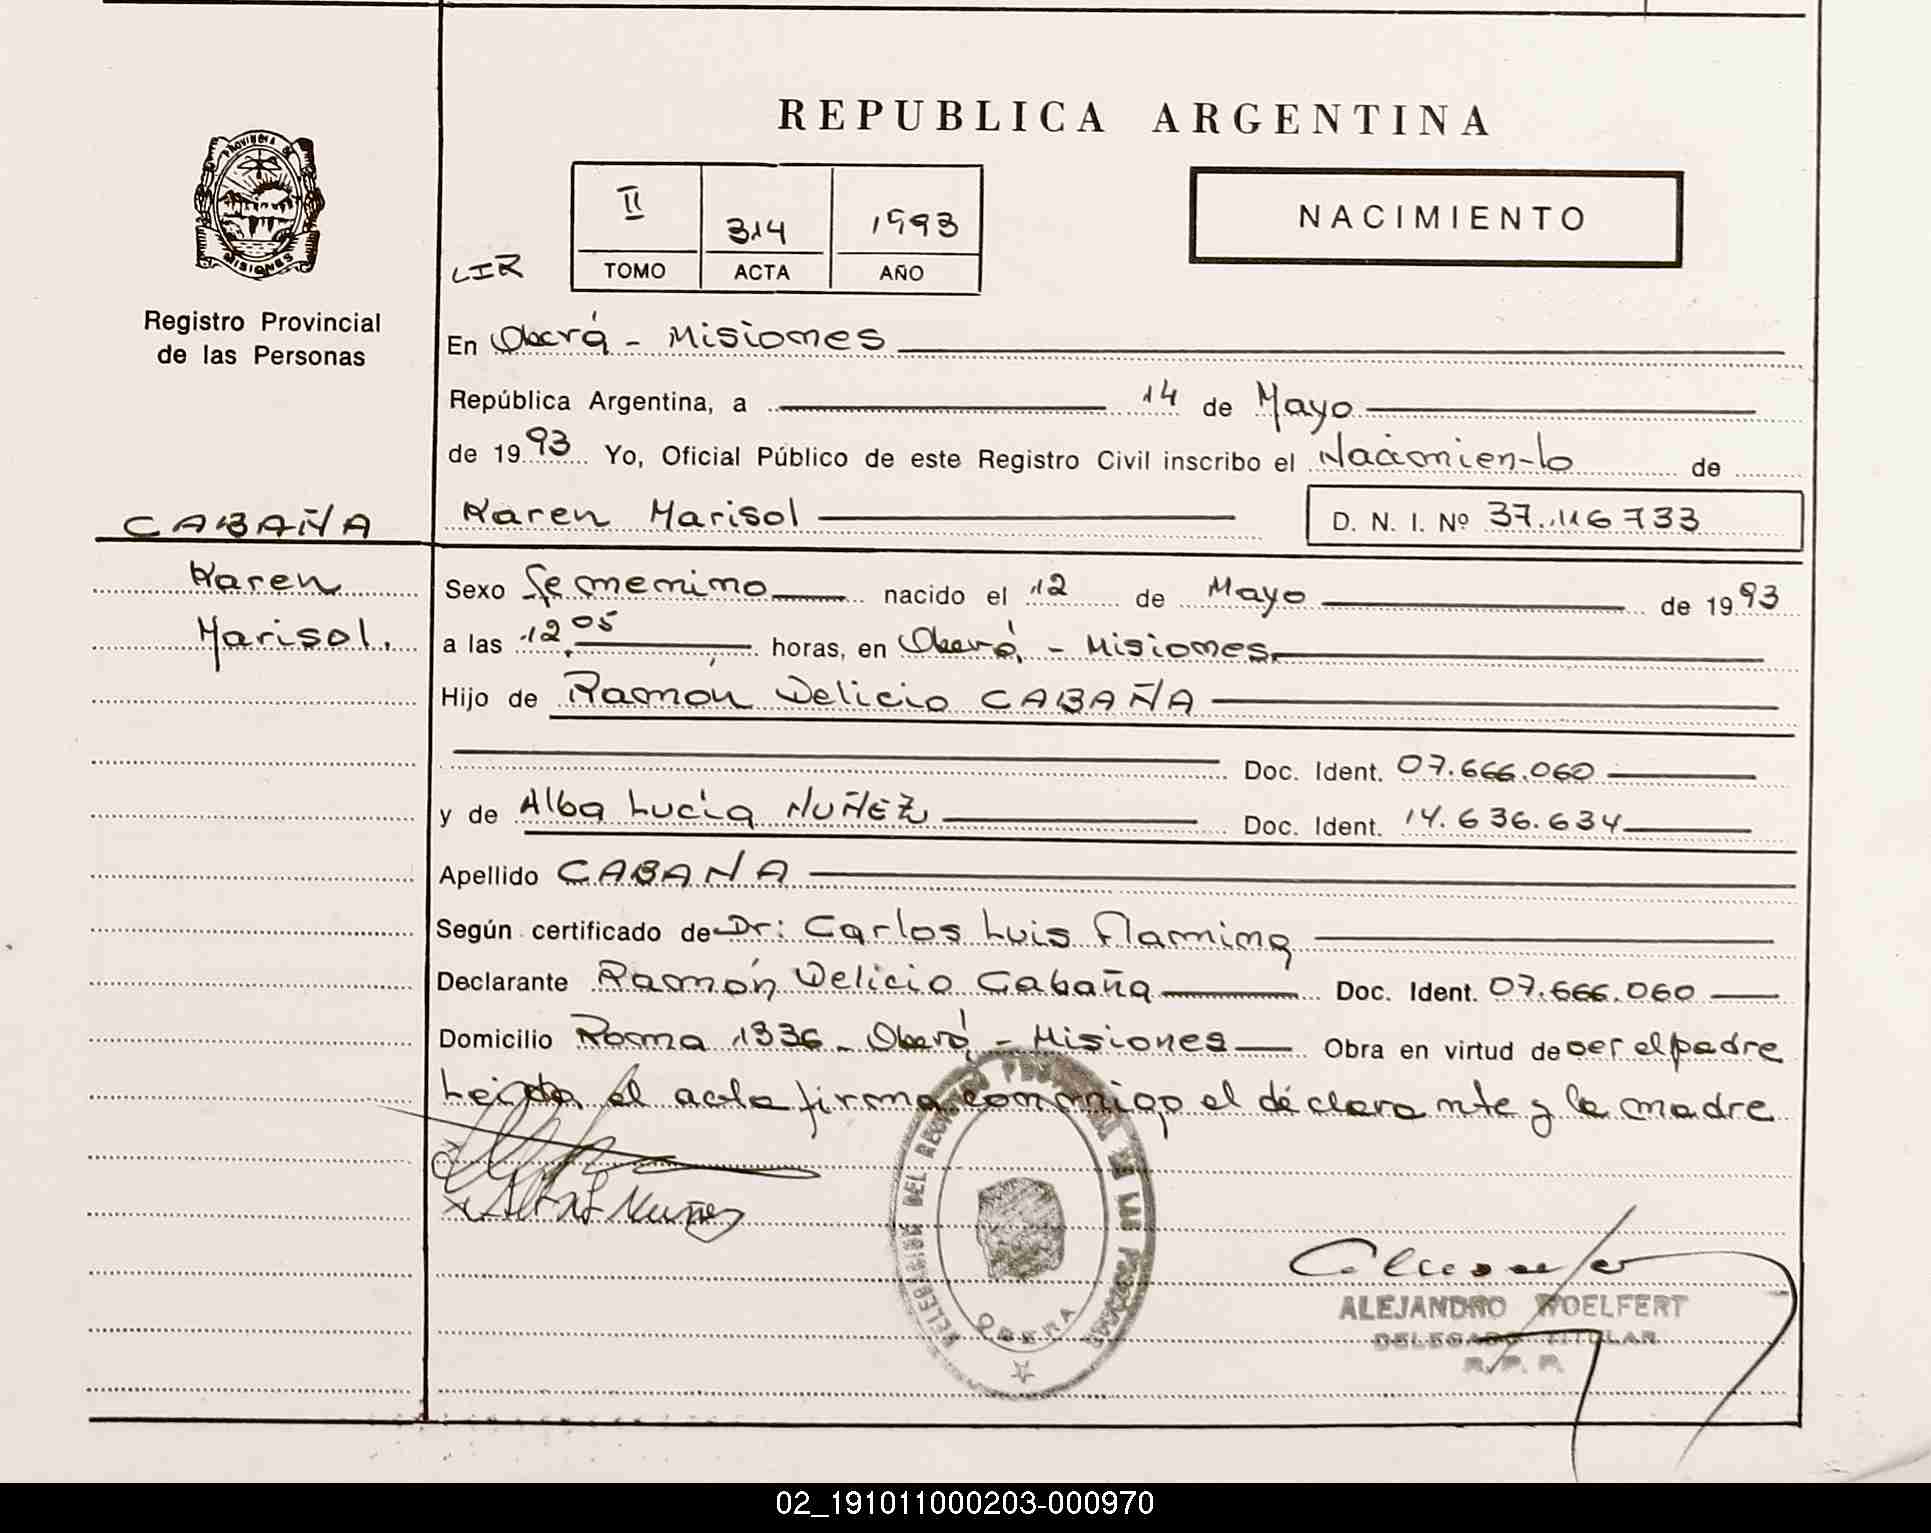 REPUBLICA ARGENTINA
PROVINCIA DE
MISIONES
Registro Provincial
de las Personas
II 314 1993
TOMO ACTA AÑO
NACIMIENTO
LIR
En Oberá - Misiones
República Argentina, a 14 de Mayo
de 1993 Yo, Oficial Público de este Registro Civil inscribo el Nacimiento de
Karen Marisol D. N. I. Nº 37.116733
CABAÑA
Karen
Marisol.
Sexo Femenino nacido el 12 de Mayo de 1993
a las 12 05 horas, en Oberá - Misiones
Hijo de Ramón Delicio CABAÑA
Doc. Ident. 07.666.060
y de Alba Lucía NUÑEZ Doc. Ident. 14.636.634
Apellido CABAÑA
Según certificado de Dr: Carlos Luis
Declarante Ramón Delicio Cabaña Doc. Ident. 07.666.060
Domicilio Roma 1336 - Oberá - Misiones Obra en virtud de ser el padre
Leida el acta firma conmigo el declarante y la madre
Nuñez
DELEGACION DEL REGISTRO PROVINCIAL DE LAS PERSONAS
OBERA
ALEJANDRO WOELFERT
DELEGADO TITULAR
R. P. P.
02_191011000203-000970